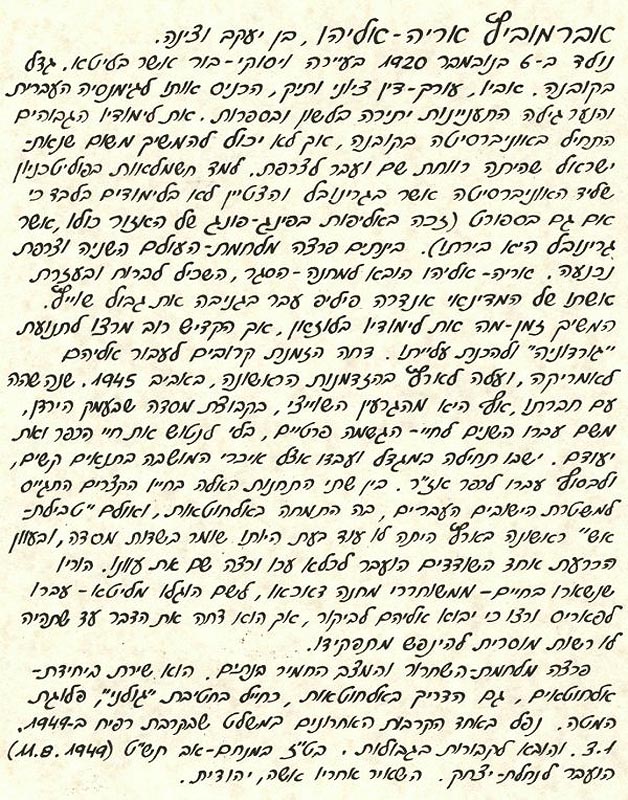 אברמוביץ אריה-אליהו, בן יעקב וצינה.
נולד ב-6 בנובמבר 1920 בעיירה ויסוקי-בור אשר בליטא. גדל
בקובנה. אביו, עורך-דין ציוני ותיק, הכניס אותו לגימנסיה העברית
והנער גילה התעניינות יתירה בלשון ובספרות. את לימודיו הגבוהים
התחיל באוניברסיטה בקובנה, אך לא יכול להמשיך משום שנאת-
ישראל שהיתה רווחת שם ועבר לצרפת. למד חשמלאות בפוליטכניון
שליד האוניברסיטה אשר בגרינובל והצטיין לא בלימודים בלבד כי
אם גם בספורט (זכה באליפות בפינג-פונג של האזור כולו, אשר
גרינובל היא בירתו). בינתים פרצה מלחמת-העולם השניה וצרפת
נכנעה. אריה-אליהו הובא למחנה-הסגר, השכיל לברוח ובעזרת
אשתו של המדינאי אנדרה פיליפ עבר בגניבה את גבול שוייץ.
המשיך זמן-מה את לימודיו בלוזאן, אך הקדיש רוב מרצו לתנועת
"גורדוניה" ולהכנת עלייתו. דחה הזמנת קרובים לעבור אליהם
לאמריקה, ועלה לארץ בהזדמנות הראשונה, באביב 1945. שנה שהה
עם חברתו, אף היא מהגרעין השוייצי, בקבוצת מסדה שבעמק הירדן,
משם עברו השנים לחיי-הגשמה פרטיים, בלי לנטוש את חיי הכפר ואת
יעודם. ישבו תחילה במגדל ועבדו אצל איכרי המושבה בתנאים קשים,
ולבסוף עברו לכפר אז"ר. בין שתי התחנות האלה בחייו הקצרים התגייס
למשטרת הישובים העברים, בה התמחה באלחוטאות, ואולם "טבילת-
אש" ראשונה בארץ היתה לו עוד בעת היותו שומר בשדות מסדה, ובעוון
הכרעת אחד השודדים הועבר לכלא עכו ורצה שם את עוונו. הוריו
שנשארו בחיים - ממשוחררי מחנה דאכאו, לשם הוגלו מליטא - עברו
לפאריס ורצו כי יבוא אליהם לביקור, אך הוא דחה את הדבר עד שתהיה
לו רשות מוסרית להינפש מתפקידו.
פרצה מלחמת-השחרור והמצב החמיר בנתים. הוא שירת ביחידת-
אלחוטאים, גם הדריך באלחוטאות, כחייל בחטיבת "גולני", פלוגת
המטה. נפל באחד הקרבות האחרונים במשלט שבקרבת רפיח ב-1949.
3.1. והובא לקבורות בגבולות. בט"ז במנחם-אב תש"ט (11.8.1949)
הועבר לנחלת-יצחק. השאיר אחריו אשה, יהודית.